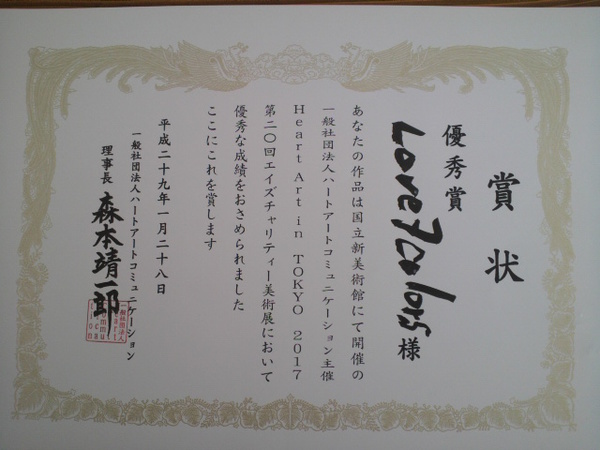 賞状
優秀賞
Love7colors 様
あなたの作品は国立新美術館にて開催の
一般社団法人ハートアートコミュニケーション主催
Heart Art in TOKYO 2017
第二〇回エイズチャリティー美術展において
優秀な成績をおさめられました
ここにこれを賞します
平成二十九年一月二十八日
一般社団法人ハートアートコミュニケーション
理事長 森本靖一郎